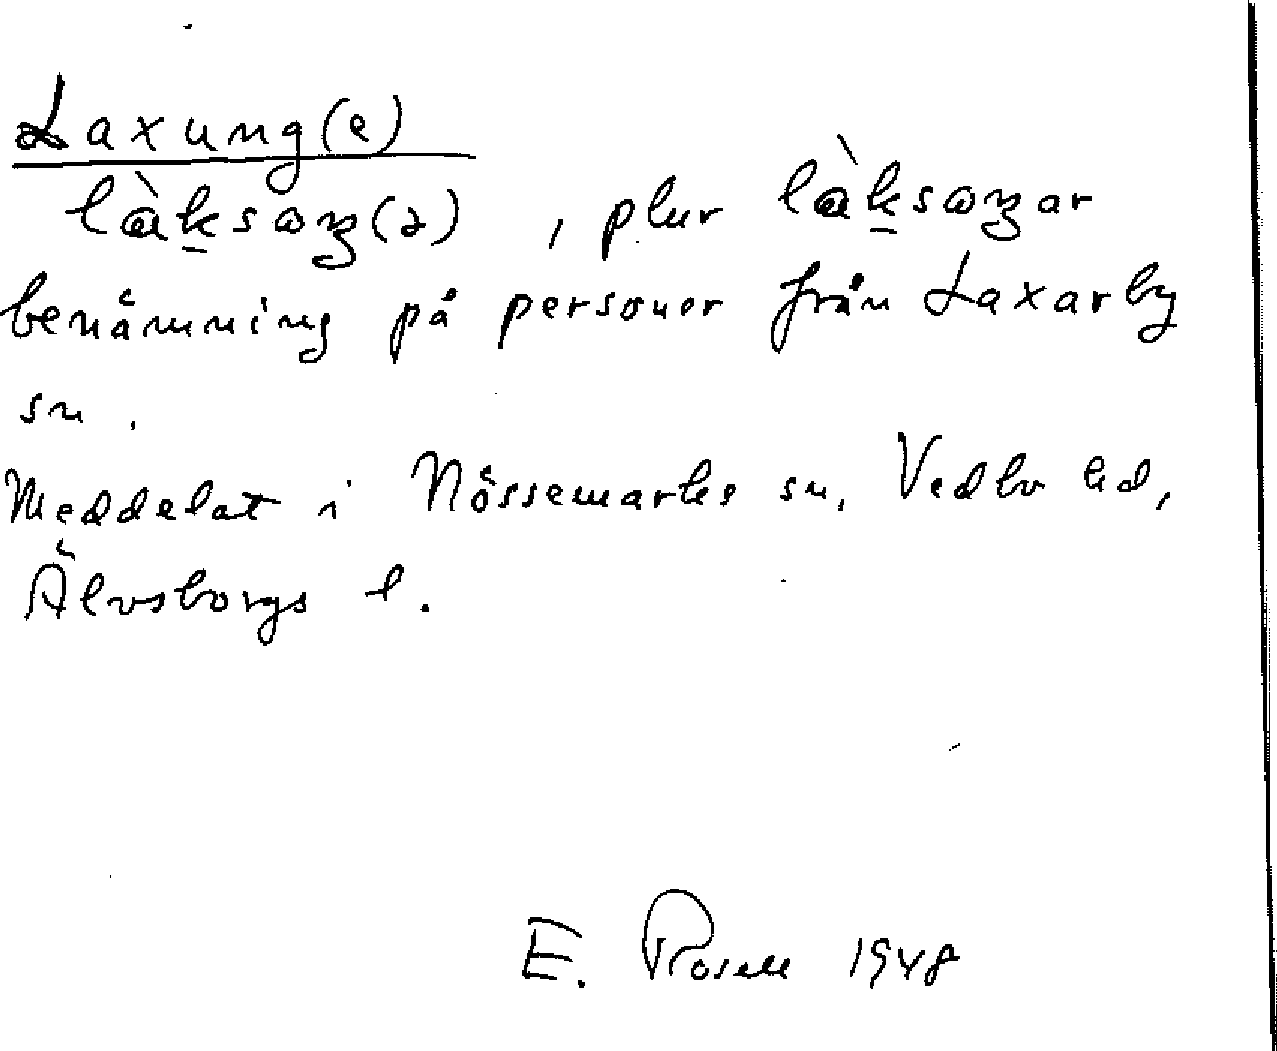 Laxung(e)
làksωŋ(ə), plur làksωŋar
benämning på personer från Laxarby
sn.
Meddelat i Nössemarks sn, Vedbo hd,
Älvsborgs l.
E. Rosell 1948